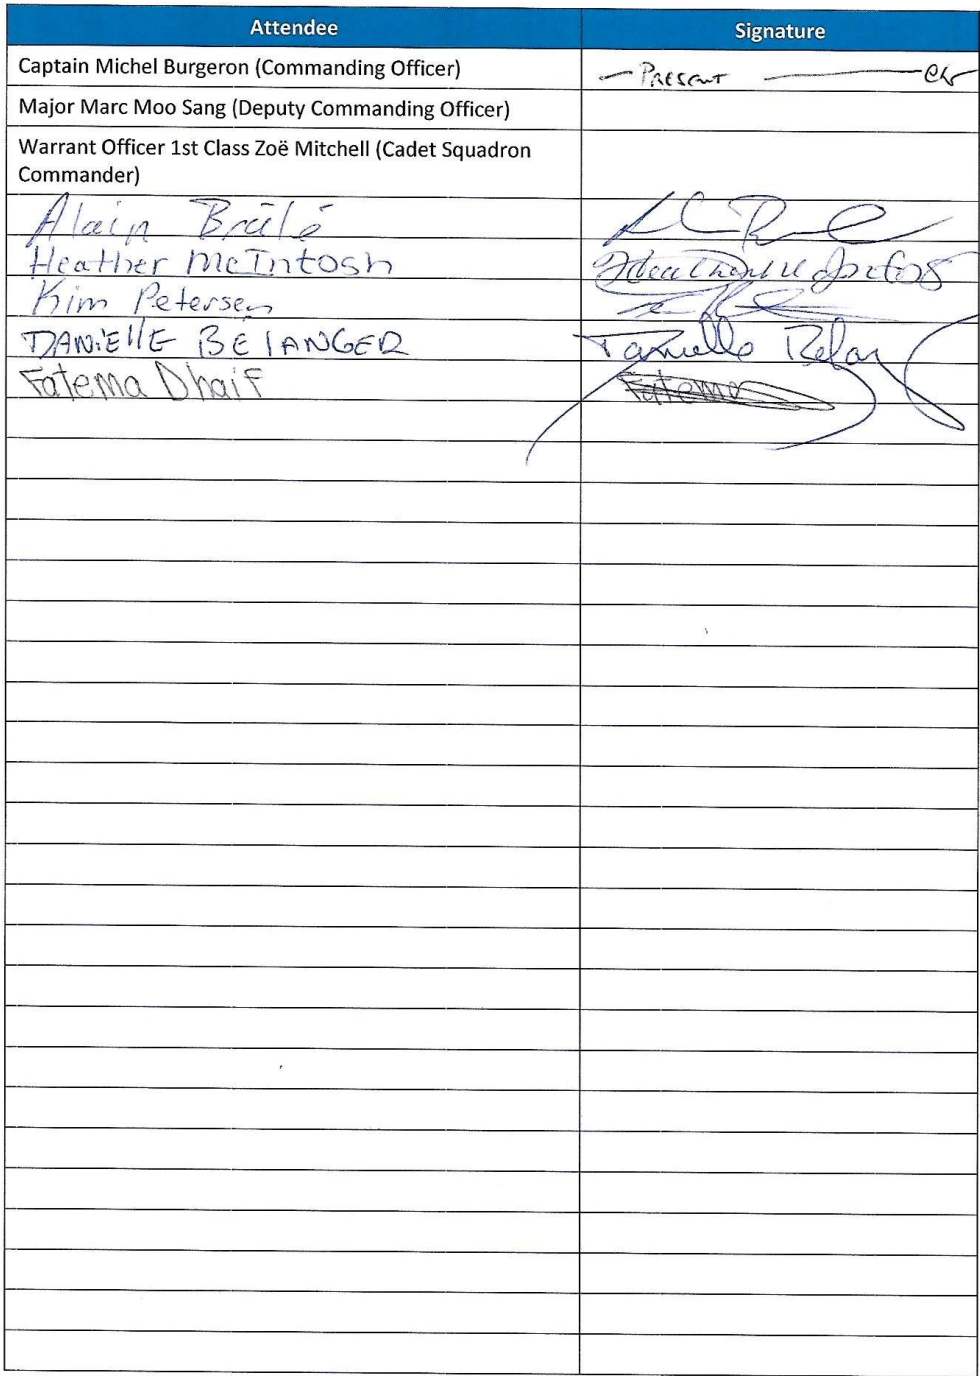 Attendee Signature
Captain Michel Burgeron (Commanding Officer) Present
Major Marc Moo Sang (Deputy Commanding Officer)
Warrant Officer 1st Class Zoë Mitchell (Cadet Squadron
Commander)
Alain Brûlé
Heather McIntosh Heather McIntosh
Kim Petersen
DANiEllE BElANGER Danielle
Fatema Dhaif Fatema